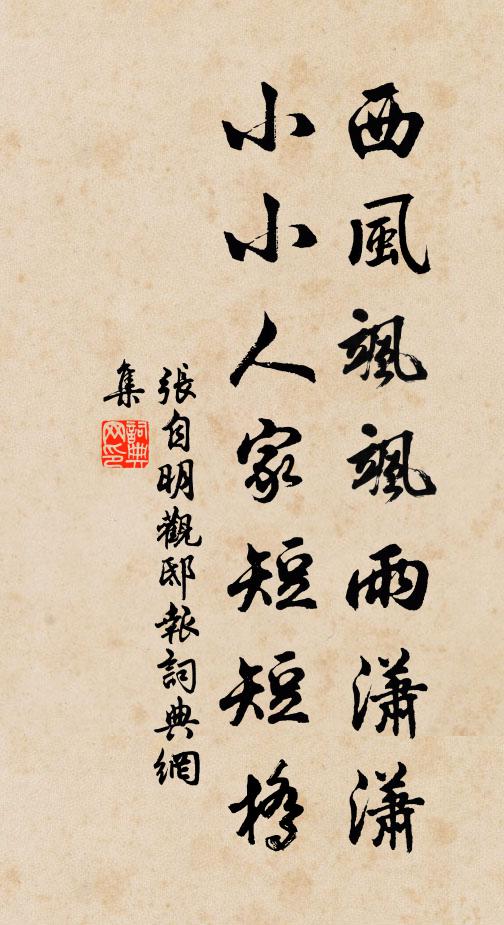 西風颯颯雨瀟瀟
小小人家短短橋
張自明觀邸報詞典網
集
詞典网印